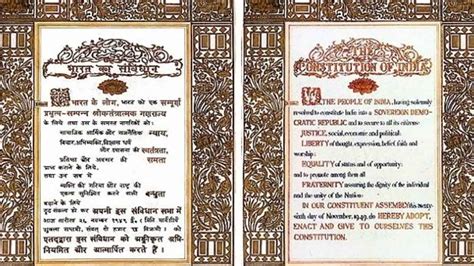 भारत का संविधान
भारत के लोग, भारत को एक सम्पूर्ण
प्रभुत्व-सम्पन्न लोकतंत्रात्मक गणराज्य
के लिये, तथा उस के समस्त नागरिकों को:
सामाजिक आर्थिक और राजनैतिक न्याय,
विचार,अभिव्यक्ति,विश्वास धर्म
और उपासना की स्वतंत्रता,
प्रतिष्ठा और अवसर की समता
प्राप्त कराने के लिये,
तथा उन सब में
व्यक्ति की गरिमा और राष्ट्र की
एकता सुनिश्चित करने वाली बन्धुता
बढ़ाने के लिये
दृढ़ संकल्प हो कर अपनी इस संविधान सभा में
आज तारीख २६ नवम्बर १९४९ ई०
संवत् दो हज़ार छै विक्रमी) को
एतद्द्वारा इस संविधान को अङ्गीकृत, अधि-
नियमित और आत्मार्पित करते हैं।
THE
CONSTITUTION OF INDIA
WE, THE PEOPLE OF INDIA, having solemnly
resolved to constitute India into a SOVEREIGN DEMO-
CRATIC REPUBLIC and to secure to all its citizens:
JUSTICE, social, economic and political;
LIBERTY of thought, expression, belief, faith and
worship;
EQUALITY of status and of opportunity;
and to promote among them all
FRATERNITY assuring the dignity of the individual
and the unity of the Nation;
IN OUR CONSTITUENT ASSEMBLY this twenty-
sixth day of November, 1949, do HEREBY ADOPT,
ENACT AND GIVE TO OURSELVES THIS
CONSTITUTION.